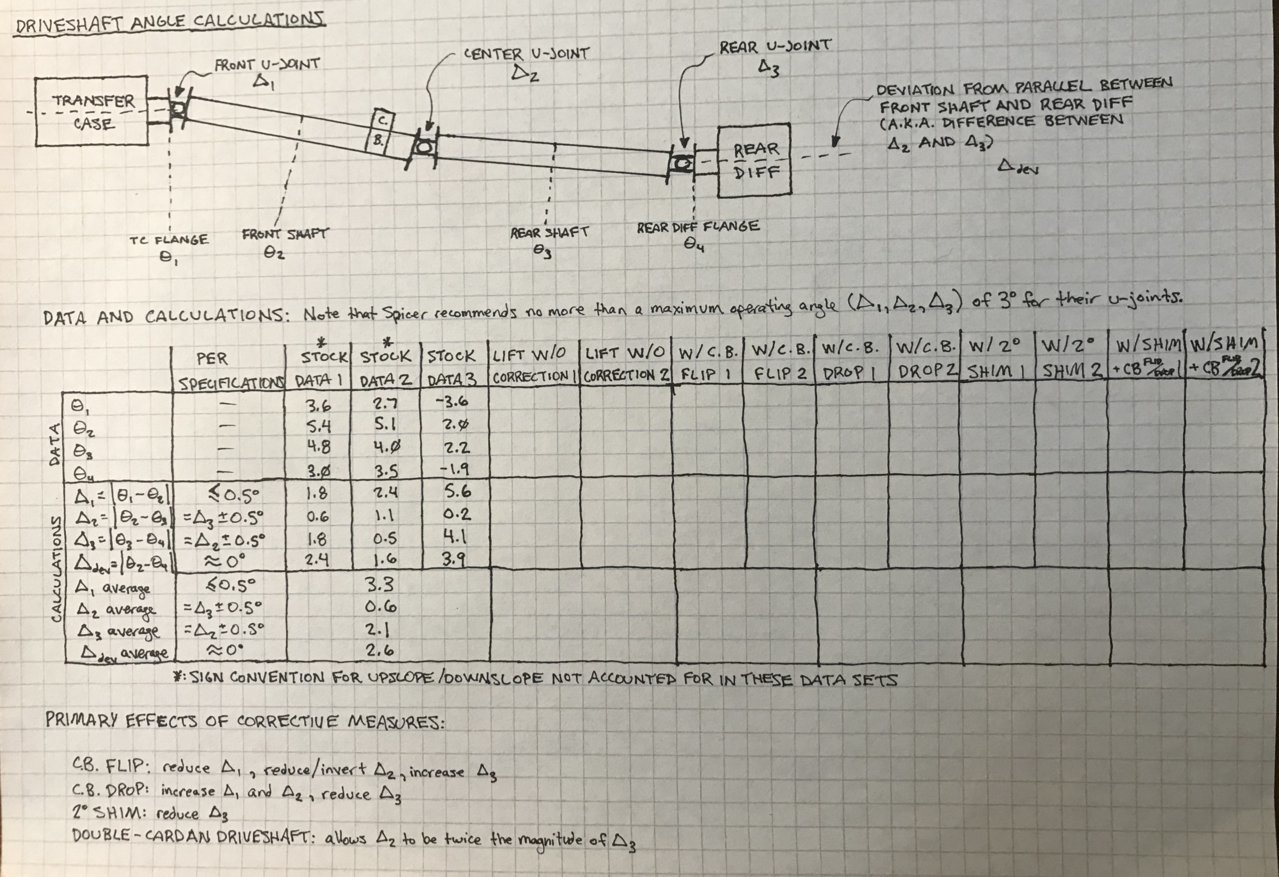 DRIVESHAFT ANGLE CALCULATIONS
FRONT U-JOINT
Δ₁
CENTER U-JOINT
Δ₂
REAR U-JOINT
Δ₃
DEVIATION FROM PARALLEL BETWEEN
FRONT SHAFT AND REAR DIFF
(A.K.A. DIFFERENCE BETWEEN
Δ₂ AND Δ₃)
Δdev
TRANSFER
CASE
C.
B.
REAR
DIFF
TC FLANGE
θ₁
FRONT SHAFT
θ₂
REAR SHAFT
θ₃
REAR DIFF FLANGE
θ₄
DATA AND CALCULATIONS: Note that Spicer recommends no more than a maximum operating angle (Δ₁, Δ₂, Δ₃) of 3° for their u-joints.
PER SPECIFICATIONS
* STOCK DATA 1
* STOCK DATA 2
STOCK DATA 3
LIFT W/O CORRECTION 1
LIFT W/O CORRECTION 2
W/C.B. FLIP 1
W/C.B. FLIP 2
W/C.B. DROP 1
W/C.B. DROP 2
W/ 2° SHIM 1
W/ 2° SHIM 2
W/SHIM + CB FLIP/DROP 1
W/SHIM + CB FLIP/DROP 2
DATA
θ₁ — 3.6 2.7 -3.6
θ₂ — 5.4 5.1 2.0
θ₃ — 4.8 4.0 2.2
θ₄ — 3.0 3.5 -1.9
CALCULATIONS
Δ₁=|θ₁-θ₂| ≤0.5° 1.8 2.4 5.6
Δ₂=|θ₂-θ₃| =Δ₃±0.5° 0.6 1.1 0.2
Δ₃=|θ₃-θ₄| =Δ₂±0.5° 1.8 0.5 4.1
Δdev=|θ₂-θ₄| ≈0° 2.4 1.6 3.9
Δ₁ average ≤0.5° 3.3
Δ₂ average =Δ₃±0.5° 0.6
Δ₃ average =Δ₂±0.5° 2.1
Δdev average ≈0° 2.6
*: SIGN CONVENTION FOR UPSLOPE/DOWNSLOPE NOT ACCOUNTED FOR IN THESE DATA SETS
PRIMARY EFFECTS OF CORRECTIVE MEASURES:
C.B. FLIP: reduce Δ₁, reduce/invert Δ₂, increase Δ₃
C.B. DROP: increase Δ₁ and Δ₂, reduce Δ₃
2° SHIM: reduce Δ₃
DOUBLE-CARDAN DRIVESHAFT: allows Δ₂ to be twice the magnitude of Δ₃